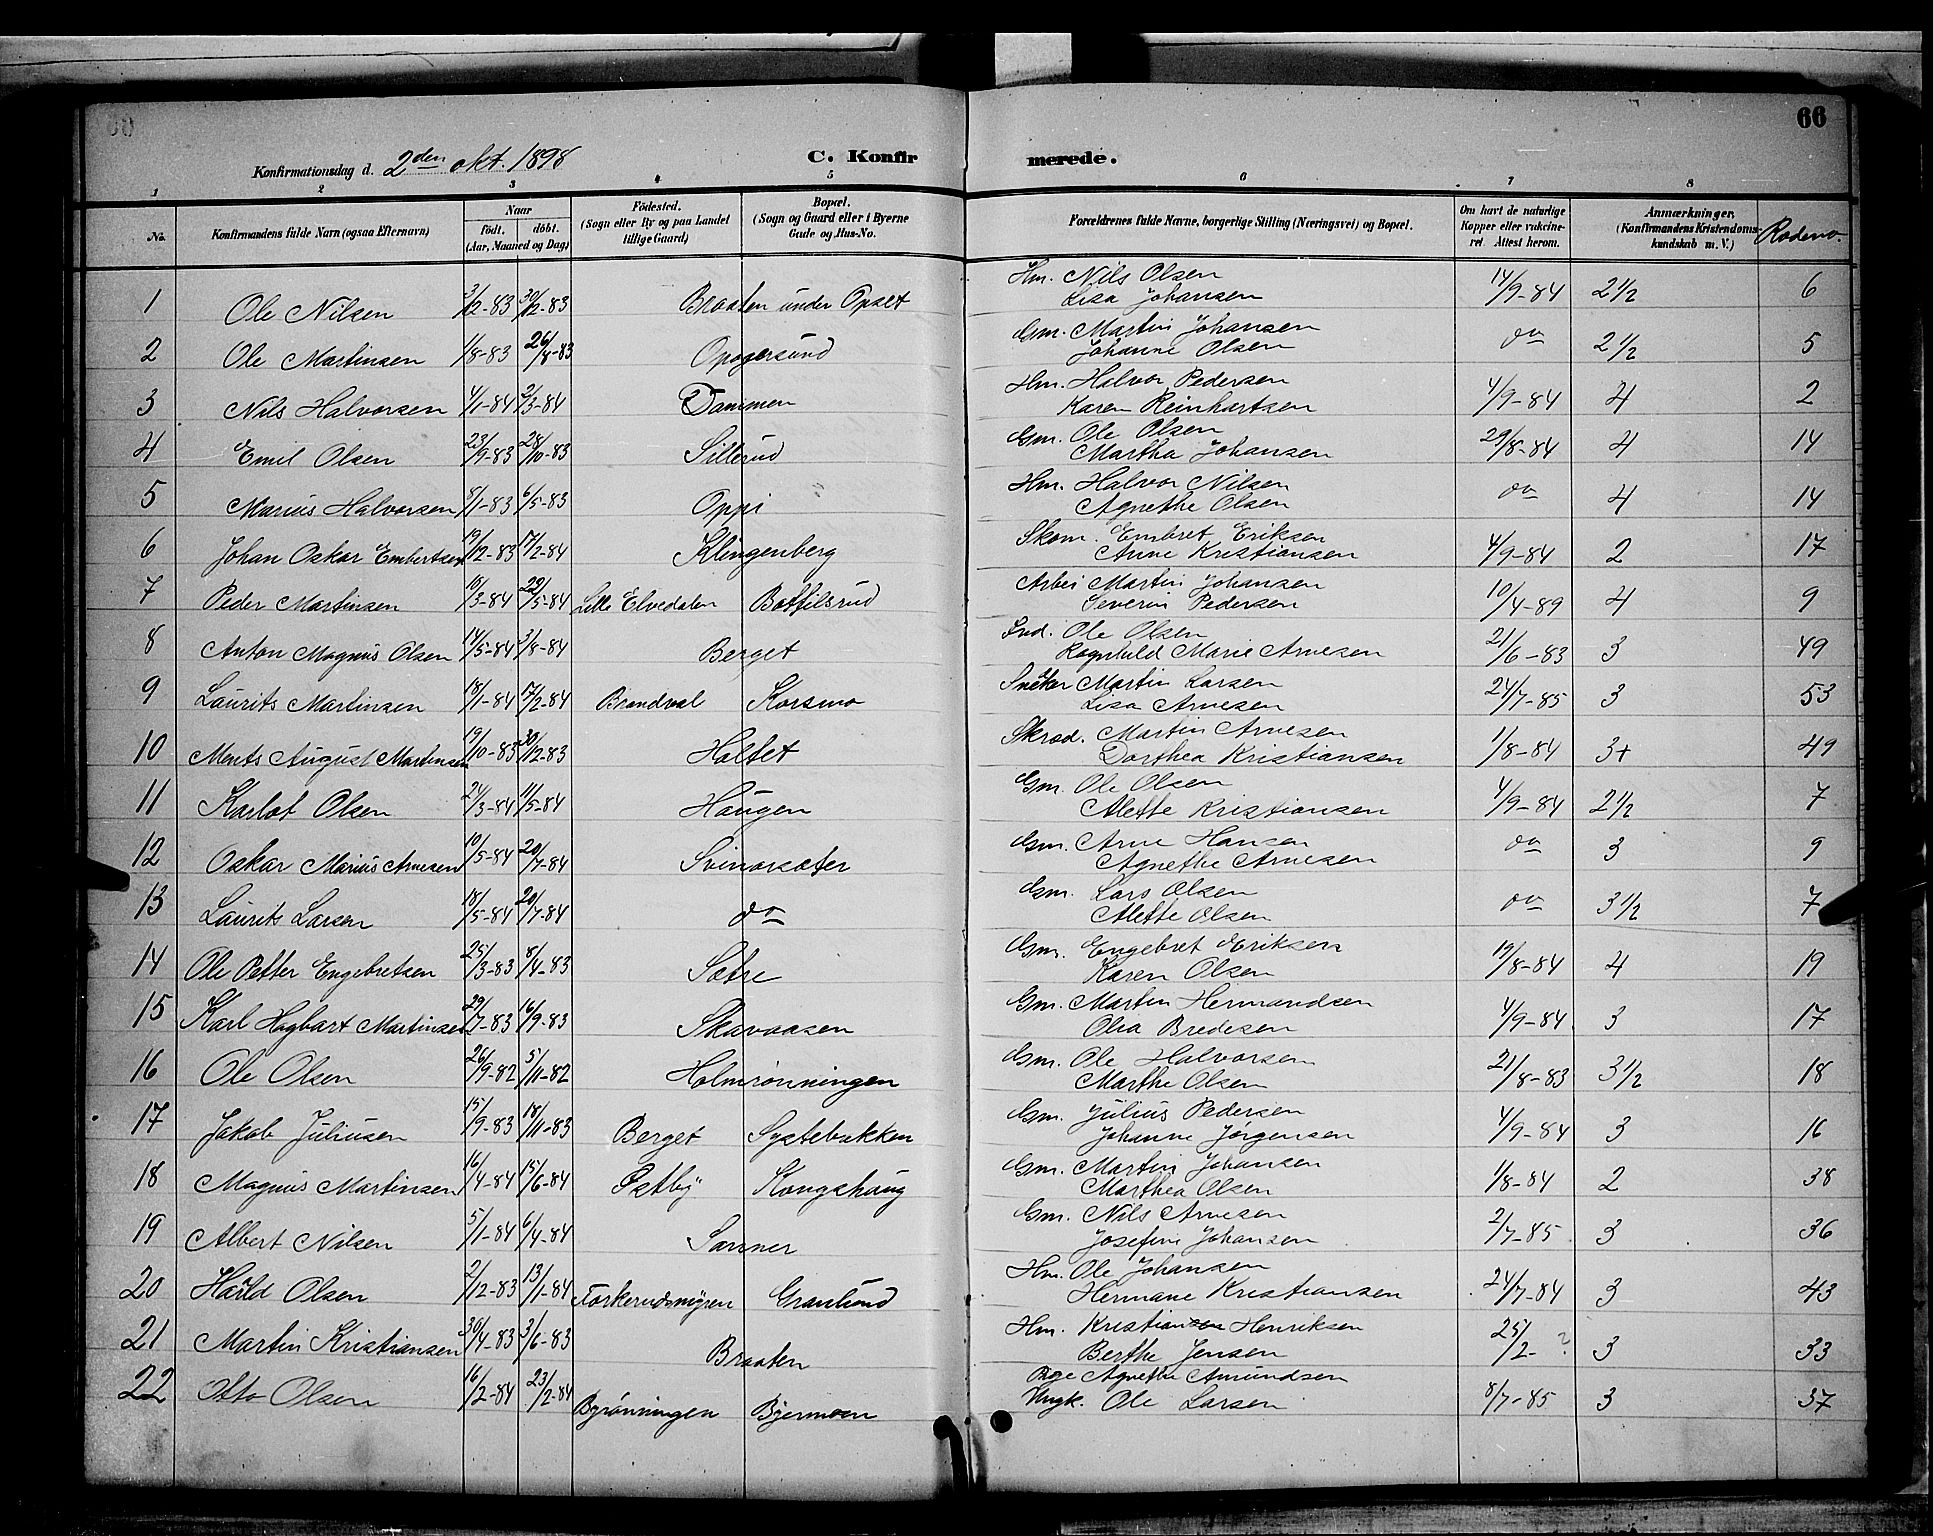 66
Konfirmationsdag d. 2den okt. 1898 C. Konfirmerede.
1 2 3 4 5 6 7 8
No. Konfirmandens fulde Navn (ogsaa Efternavn) Naar født. døbt. (Aar, Maaned og Dag) Fødested. (Sogn eller By og paa Landet tillige Gaard) Bopæl. (Sogn og Gaard eller i Byerne Gade og Hus-No. Forældrenes fulde Navne, borgerlige Stilling (Næringsvei) og Bopæl. Om havt de naturlige Kopper eller vakcineret. Attest herom. Anmærkninger. (Konfirmandens Kristendomskundskab m. V.) Rodeno.
1 Ole Nilsen 3/12-83 30/12-83 Braaten under Opset Hm. Nils Olsen 14/9-84 2 1/2 6
Lisa Johansen
2 Ole Martinsen 1/8-83 26/8-83 Opogersund Gm. Martin Johansen do 2 1/2 5
Johanne Olsen
3 Nils Halvorsen 4/1-84 2/3-84 Dammen Hm. Halvor Pedersen 4/9-84 4 2
Karen Reinhartsen
4 Emil Olsen 23/9-83 28/10-83 Sillerud Gm. Ole Olsen 29/8-84 4 14
Martha Johansen
5 Marius Halvorsen 8/1-83 6/5-83 Oppi Hm. Halvor Nilsen do 4 14
Agnethe Olsen
6 Johan Oskar Embertsen 19/12-83 17/2-84 Klingenberg Skom. Embret Eriksen 4/9-84 2 17
Anne Kristiansen
7 Peder Martinsen 10/3-84 22/5-84 Lille Elvedalen Botfilsrud Arbei Martin Johansen 10/4-89 4 9
Severin Pedersen
8 Anton Magnus Olsen 14/5-84 3/8-84 Berget Ind. Ole Olsen 21/6-83 3 49
Ragnhild Marie Arnesen
9 Laurits Martinsen 18/1-84 17/2-84 Brandval Korsmo Snekker Martin Larsen 24/7-85 3 53
Lisa Arnesen
10 Merits August Martinsen 19/10-83 30/12-83 Holtet Skræd. Martin Arnesen 1/8-84 3+ 49
Dorthea Kristiansen
11 Karlot Olsen 24/3-84 11/5-84 Haugen Gm. Ole Olsen 4/9-84 2 1/2 7
Alette Kristiansen
12 Oskar Marius Arnesen 10/5-84 20/7-84 Svinorsæter Gm. Arne Hansen do 3 9
Agnethe Arnesen
13 Laurits Larsen 18/5-84 20/7-84 do Gm. Lars Olsen do 3 1/2 7
Alette Olsen
14 Ole Petter Engebretsen 25/3-83 8/4-83 Sætre Gm. Engebret Eriksen 19/8-84 4 19
Karen Olsen
15 Karl Hagbart Martinsen 29/7-83 16/9-83 Skavaasen Gm. Martin Hermandsen 4/9-84 3 17
Olia Bredesen
16 Ole Olsen 26/9-82 5/11-82 Holmrønningen Gm. Ole Halvorsen 21/8-83 3 1/2 18
Marthe Olsen
17 Jakob Juliusen 15/9-83 18/11-83 Berget Systebakken Gm. Julius Pedersen 4/9-84 3 16
Johanne Jørgensen
18 Magnus Martinsen 16/4-84 15/6-84 Østby Kongshaug Gm. Martin Johansen 1/8-84 2 38
Marthea Olsen
19 Albert Nilsen 5/1-84 6/4-84 Sanner Gm. Nils Arnesen 2/7-85 3 36
Josefine Johansen
20 Harld Olsen 2/12-83 13/1-84 Torkerudsmyren Granlund Hm. Ole Johansen 24/7-84 3 43
Hermane Kristiansen
21 Martin Kristiansen 30/4-83 3/6-83 Braaten Hm. Kristiansen Henriksen 25/2-? 3 33
Berthe Jensen
22 Otto Olsen 16/2-84 23/2-84 Byrønningen Byermoen Pige Agnethe Amundsen 8/7-85 3 37
Ungk. Ole Larsen